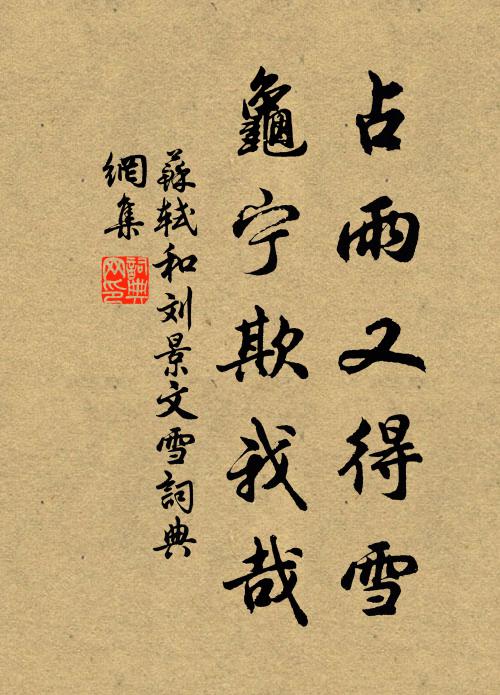 占雨又得雪
龜宁欺我哉
蘇轼和刘景文雪詞典
網集
詞典
网印